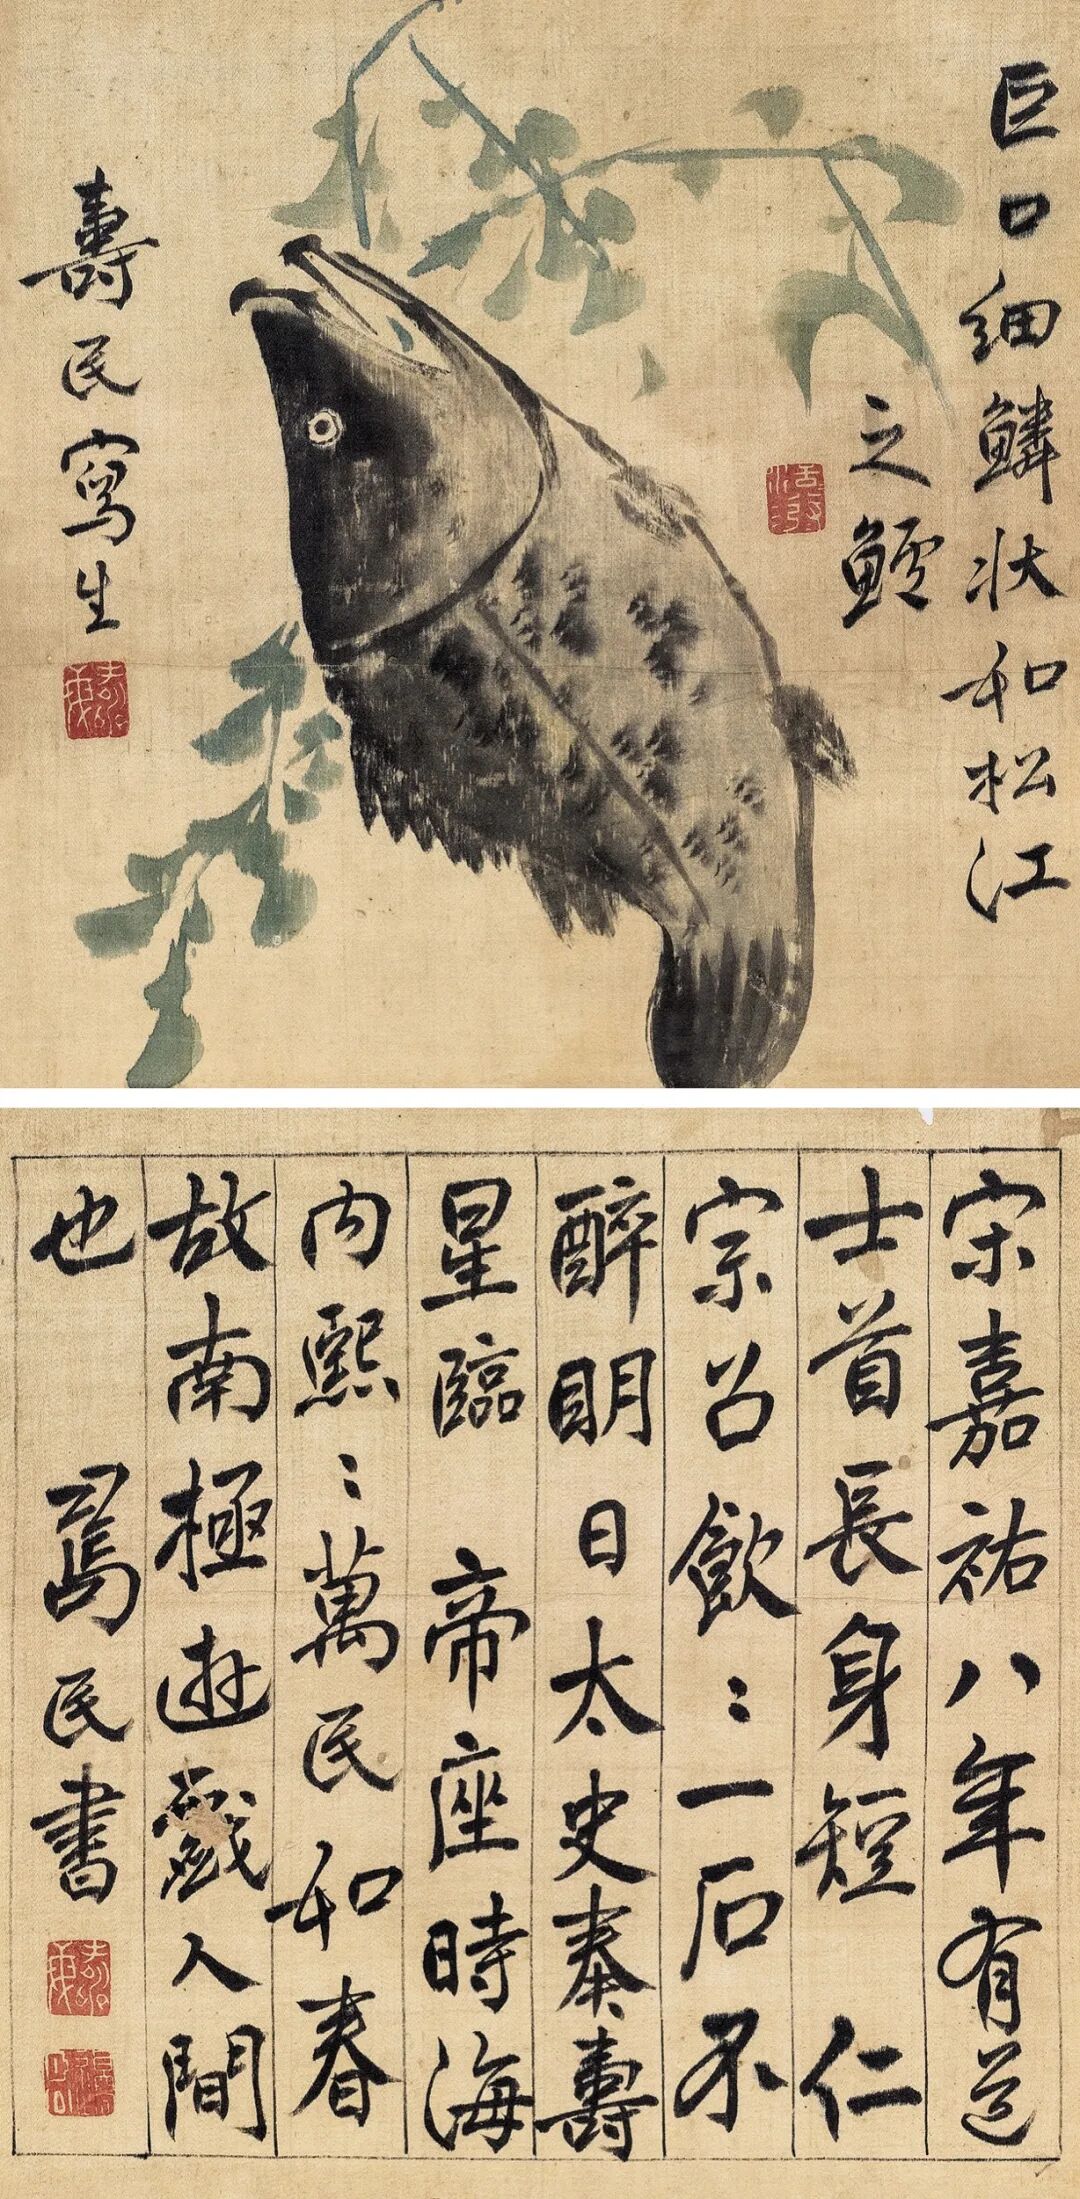 巨口細鱗狀和松江
之鱸
壽民寫生
宋嘉祐八年有道
士首長身短 仁
宗召飲〻一石不
醉明日太史奏壽
星臨 帝座時海
內熙〻萬民和春
故南極遊戲人間
也 壽民書